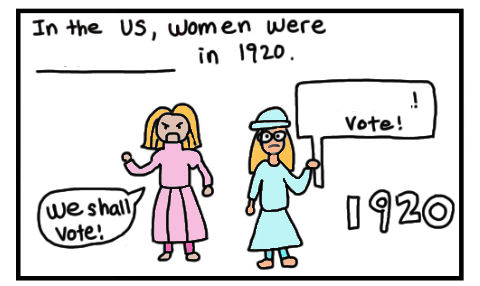 In the US, women were
__________ in 1920.
!
Vote!
We shall
Vote!
1920